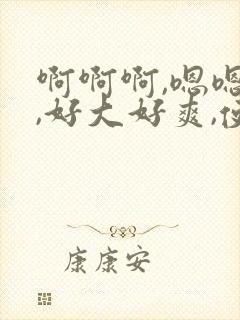 啊啊啊,嗯嗯
,好大好爽,
康康安